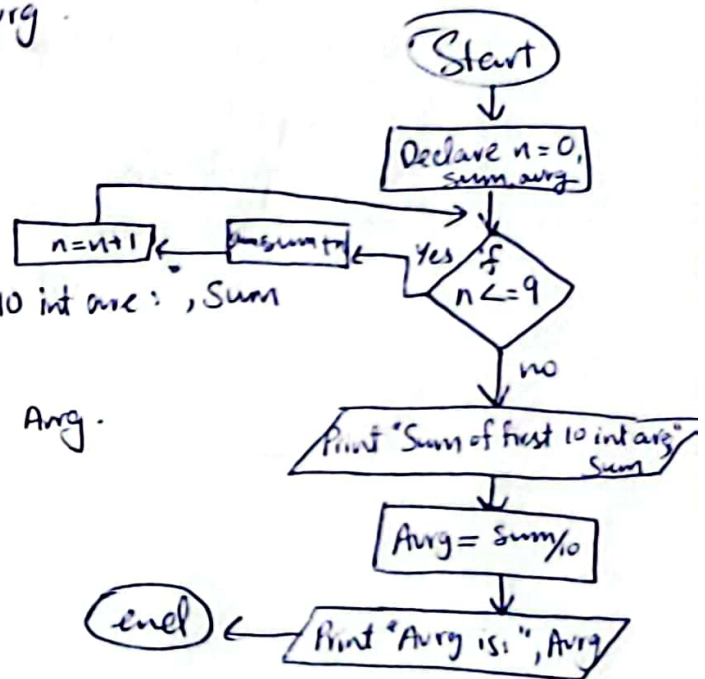 Avrg.
Start
Declare n=0,
sum, avrg
n=n+1
sum+n
Yes
if
n <= 9
10 int are: ", Sum
no
Avrg.
Print "Sum of first 10 int
Sum
Avrg = Sum/10
end
Print "Avrg is: ", Avrg